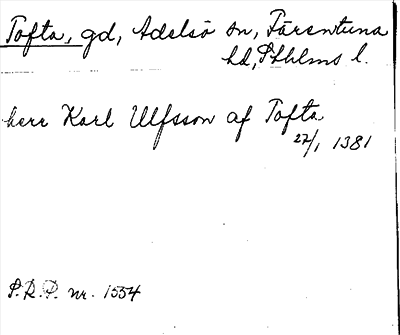 Tofta, gd, Adelsö sn, Färentuna
hd, Sthlms l.
herr Karl Ulfsson af Tofta
27/1 1381
S.R.P. nr. 1554